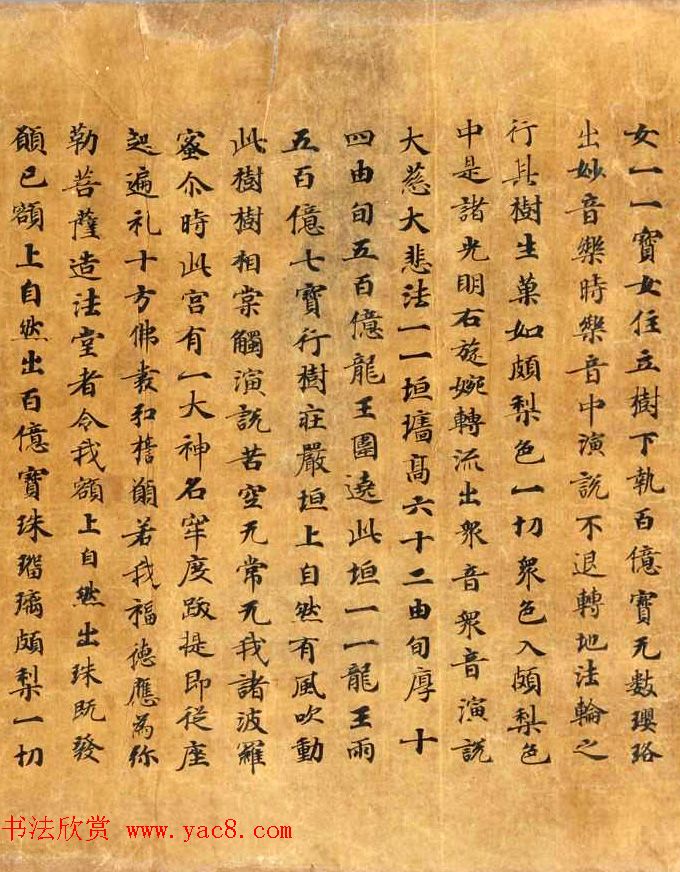 女一一寶女住立樹下執百億寶无數瓔珞
出妙音樂時樂音中演說不退轉地法輪之
行其樹生菓如頗梨色一切衆色入頗梨色
中是諸光明右旋婉轉流出衆音衆音演說
大慈大悲法一一垣牆高六十二由旬厚十
四由旬五百億龍王圍遶此垣一一龍王雨
五百億七寶行樹莊嚴垣上自然有風吹動
此樹樹相棠觸演說苦空无常无我諸波羅
蜜尒時此宮有一大神名牢度跋提即從座
起遍礼十方佛叢和誓願若我福德應為弥
勒菩薩造法堂者令我額上自然出珠既發
願已額上自然出百億寶珠瑠璃頗梨一切
书法欣赏 www.yac8.com